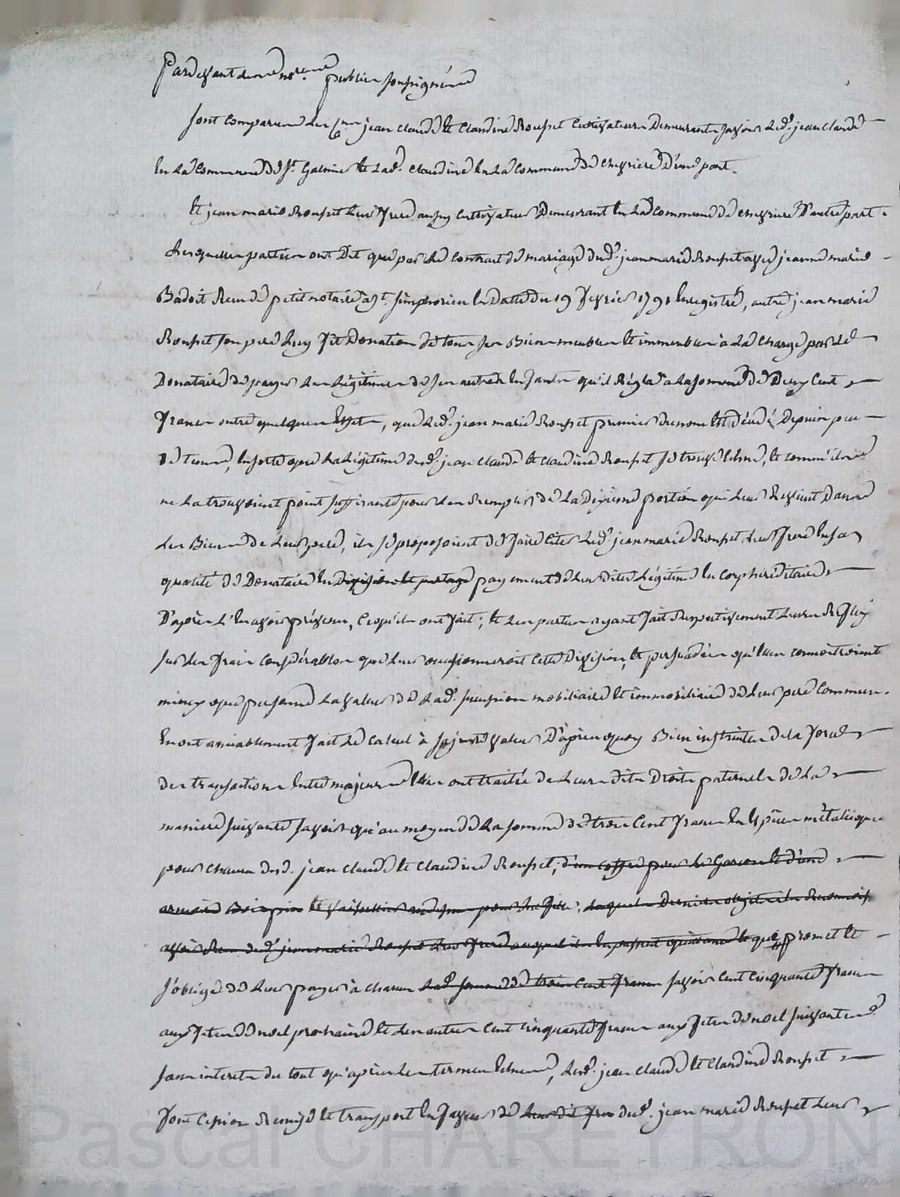 Pardevant les no.res publics soussignés
sont comparus les c.ens jean claude et claudine Rousset cultivateurs demeurants savoir led. jean claude
en la commune de S.t Galmier et lad. claudine en la commune de chevriere d'une part.
et jean marie Rousset leur frere aussy cultivateur demeurant en lad commune de chevriere d'autre part.
Lesquelles parties ont dit que par le contrat de mariage dud. jean marie Rousset avec jeanne marie
Badoit Reçu de petit notaire a S.t Simphorien en datte du 19 fevrier 1791 enregistré, autre jean marie
Rousset son pere luy fit donation de tous ses Biens meubles et immeubles à la charge par le
Donataire de payer les légitimes de ses autres enfants qu'il régla a la somme de Deux Cent
francs outre quelques effets, que led. jean marie Rousset premier du nom est décédé Depuis peu
de tems, ensorte que la légitime dud. jean claude et claudine Rousset se trouve echue, et comme ils
ne la trouvoient point suffisante pour les Remplir de la portion qui leur Revient Dans
les Biens de leur pere, ils se proposoient de faire citer led. jean marie Rousset leur frere en sa
qualité de Donataire en division et partage payement de leur dite légitime en corps héréditaires
D'après l'en avoir prévenu, ce qu'ils ont fait; et les parties ayant fait Respectivement leurs Reflex
sur les frais considérables que leur occasionneroit cette Division, et persuadées qu'elles connoitroient
mieux que personne la valeur de lad. succession mobiliaire et immobiliaire de leur pere commun.
en ont amiablement fait le calcul à sa juste valeur D'après quoy Bien instruites de la force
des transactions entre majeurs elles ont traitée de leurs dits Droits paternels de la
maniere suivante savoir qu'au moyen de la somme de trois Cent francs en espèces métaliques
pour chacun desd. jean claude et claudine Rousset, d'un coffre pour le Garcon et d'une
armoire Bois pin et vaisselier pour la fille, laquel Dernier objet
led. jean marie Rousset leur frere et que promet et
s'oblige de leur payer à chacun lad. somme de trois Cent francs savoir cent cinquante francs
aux fetes de noel prochaine et les autres cent cinquante francs aux fetes de noel suivantes
sans interets du tout qu'après les termes echus, lesd. jean claude et claudine Rousset
font cession Remise et transport en faveur de leur dit frere dud. jean marie Rousset leur
Pascal CHAREYRON